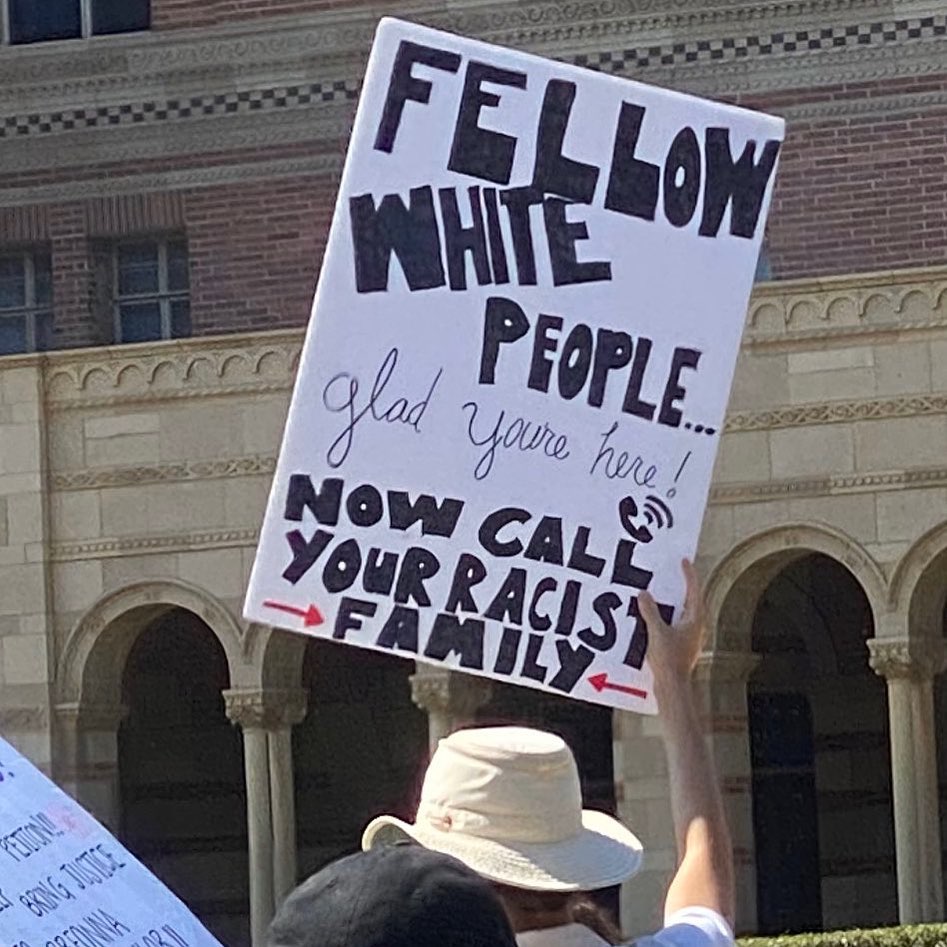 FELLOW
WHITE
PEOPLE...
glad youre here!
NOW CALL
YOUR RACIST
FAMILY
PETITION!!!
BRING JUSTICE
BREONNA